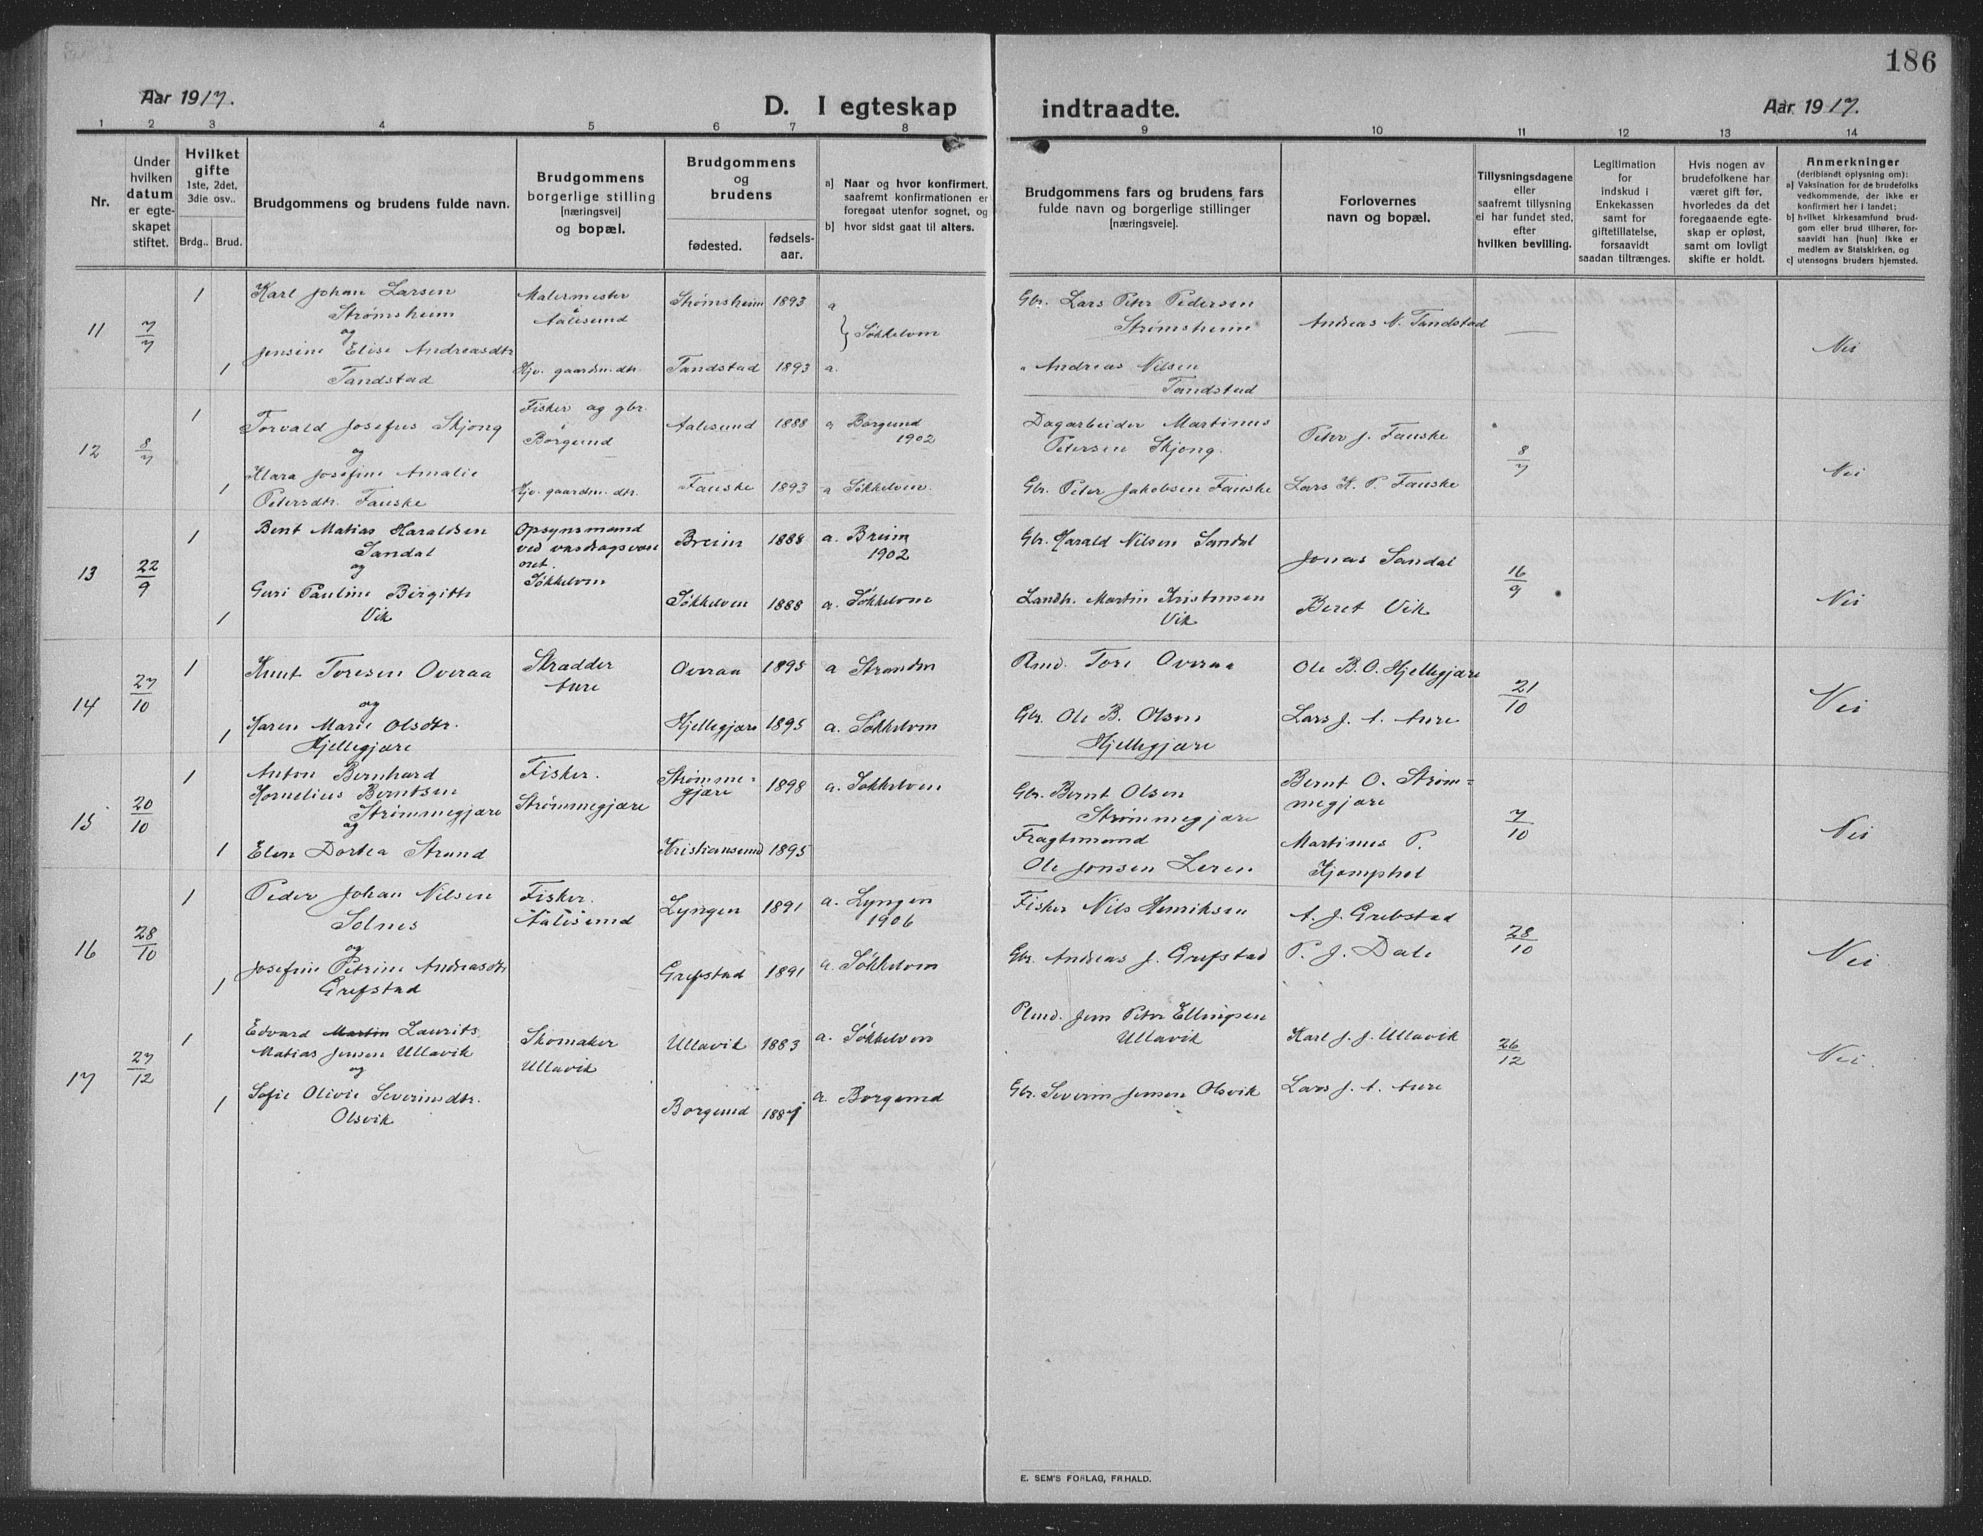 186
Aar 1917.
D. I egteskap
indtraadte.
Aar 1917.
1 2 3 4 5 6 7 8
9 10 11 12 13 14
Nr.
Under hvilken datum er egteskapet stiftet.
Hvilket gifte 1ste, 2det, 3die osv..
Brdg.. Brud.
Brudgommens og brudens fulde navn.
Brudgommens borgerlige stilling [næringsvei] og bopæl.
Brudgommens og brudens
fødested.
fødselsaar.
a] Naar og hvor konfirmert, saafremt konfirmationen er foregaat utenfor sognet, og
b] hvor sidst gaat til alters.
Brudgommens fars og brudens fars fulde navn og borgerlige stillinger [næringsveie].
Forlovernes navn og bopæl.
Tillysningsdagene eller saafremt tillysning ei har fundet sted, efter hvilken bevilling.
Legitimation for indskud i Enkekassen samt for giftetillatelse, forsaavidt saadan tiltrænges.
Hvis nogen av brudefolkene har været gift før, hvorledes da det foregaaende egteskap er opløst, samt om lovligt skifte er holdt.
Anmerkninger (deriblandt oplysning om):
a) Vaksination for de brudefolks vedkommende, der ikke er konfirmert her i landet;
b) hvilket kirkesamfund brudgom eller brud tilhører, forsaavidt han [hun] ikke er medlem av Statskirken, og
c) utensogns bruders hjemsted.
11 7/7 1 Karl Johan Larsen Malermester Strømsheim 1893 a Gbr. Lars Peter Pedersen
Strømsheim Aalesund } Søkkelven Strømsheim Andreas N. Tandstad — Nei
og
1 Jensine Elise Andreasdtr Hjv. gaardm. dtr. Tandstad 1893 a. " Andreas Nilsen
Tandstad Tandstad
12 8/7 1 Torvald Josefus Skjong Fisker og gbr. Aalesund 1888 a Borgund Dagarbeider Martinus Peter J. Fauske 8/7 Nei
i Borgund 1902 Petersen Skjong.
og
1 Klara Josefine Amalie Hjv. gaardm. dtr. Fauske 1893 a Søkkelven. Gbr. Peter Jakobsen Fauske Lars K. P. Fauske
Petersdtr. Fauske
13 22/9 1 Bent Matias Haraldsen Opsynsmand Breim 1888 a. Breim Gbr. Harald Nilsen Sandal Jonas Sandal 16/9 Nei
Sandal ved vasdragsvæs 1902
og enet. Søkkelven
1 Guri Pauline Birgitte Søkkelven 1888 a. Søkkelven Landh. Martin Kristensen Beret Vik
Vik Vik
14 27/10 1 Knut Toresen Overaa Skrædder Overaa 1895 a Stranden Pmd. Tore Overaa Ole B. O. Hjellegjære 21/10 Nei
Aure
og
1 Karen Marie Olsdtr. Hjellegjære 1895 a. Søkkelven Gbr. Ole B. Olsen Lars J. A. Aure
Hjellegjære Hjellegjære
15 20/10 1 Anton Bernhard Fisker. Strømme- 1898 a. Søkkelven Gbr. Bernt Olsen Bernt O. Strøm= 7/10 Nei
Kornelius Berntsen Strømmegjære gjære Strømmegjære megjære
Strømmegjære
og
1 Elen Dortea Strand Kristiansund 1895 Fragtemand Martinus P.
Ole Jonsen Leren Kjemphol
16 28/10 1 Peder Johan Nilsen Fisker. Lyngen 1891 a. Lyngen Fisker Nils Henriksen A. J. Grebstad 28/10 Nei
Solnes Aalesund 1906
og
1 Josefine Petrine Andreasdtr Grefstad 1891 a. Søkkelven Gbr. Andreas J. Grefstad P. J. Dale
Grefstad
17 27/12 1 Edvard Martin Laurits Skomaker Ullavik 1883 a. Søkkelven Pmd. Jens Peter Ellingsen Karl J. J. Ullavik 26/12 Nei.
Matias Jensen Ullavik Ullavik Ullavik
og
1 Sofie Olivie Severinsdtr. Borgund 1887 a. Borgund Gbr. Severin Jensen Olsvik Lars J. A. Aure
Olsvik
E. SEM'S FORLAG, FR.HALD.